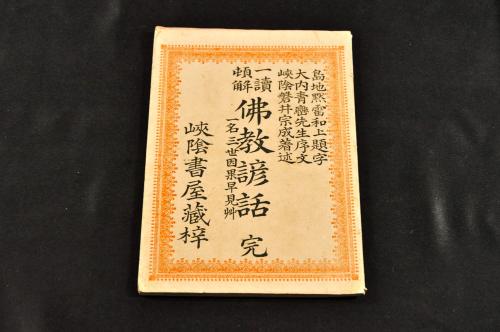 島地黙雷和上題字
大内青巒先生序文
峽陰磐井宗成著述
一讀
頓解
佛教諺話 完
一名三世因果早見艸
峽陰書屋藏梓